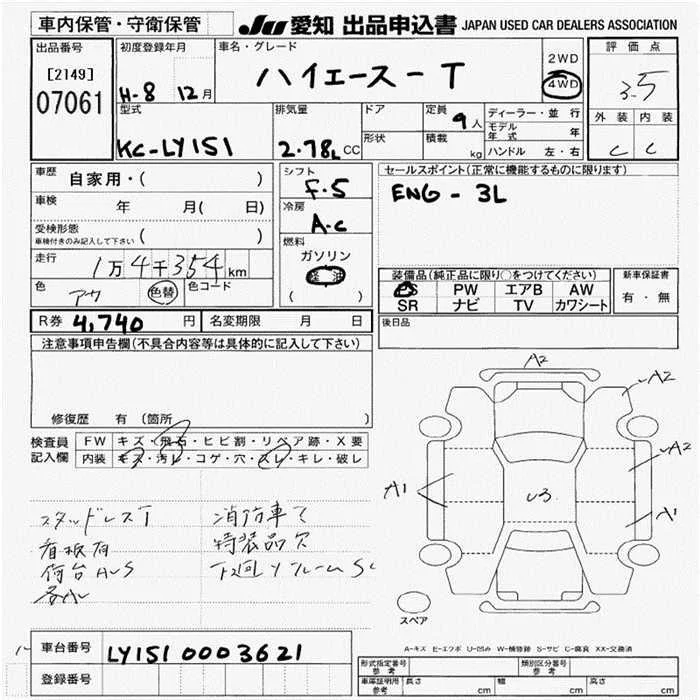 車内保管・守衛保管
JU 愛知 出品申込書 JAPAN USED CAR DEALERS ASSOCIATION
出品番号
[2149]
07061
初度登録年月
H-8 12月
車名・グレード
ハイエース-T
2WD
4WD
評価点
3.5
外装 内装
C C
型式
KC-LY151
排気量
2.78L CC
ドア
形状
定員
9人
積載
kg
ディーラー・並行
モデル年式 年
ハンドル 左・右
車歴 自家用・( )
車検 年 月( 日)
受検形態
車検付きのみ記入して下さい ( )
走行 1万4千354km
色 アカ 色替 色コード
シフト
F.5
冷房
A.C
燃料
ガソリン
軽油
( )
セールスポイント(正常に機能するものに限ります)
ENG - 3L
装備品(純正品に限り○をつけてください)
PS PW エアB AW
SR ナビ TV カワシート
新車保証書
有・無
R券 4,740円 名変期限 月 日
後日品
注意事項申告欄(不具合内容等は具体的に記入して下さい)
修復歴 有 (箇所 )
検査員記入欄
FW キズ・飛石・ヒビ割・リペア跡・X要
内装 キズ・汚レ・コゲ・穴・スレ・キレ・破レ
スタッドレスT
看板有
荷台AS
消防車で
特装品欠
下廻リフレームS
A2
A2
A2
A1
A1
U3
スペア
A-キズ E-エクボ U-凹み W-補修跡 S-サビ C-腐食 XX-交換済
車台番号 LY151 0003621
登録番号
形式指定番号 参考
類別区分番号 参考
車庫証明用 参考 長さ cm 幅 cm 高さ cm